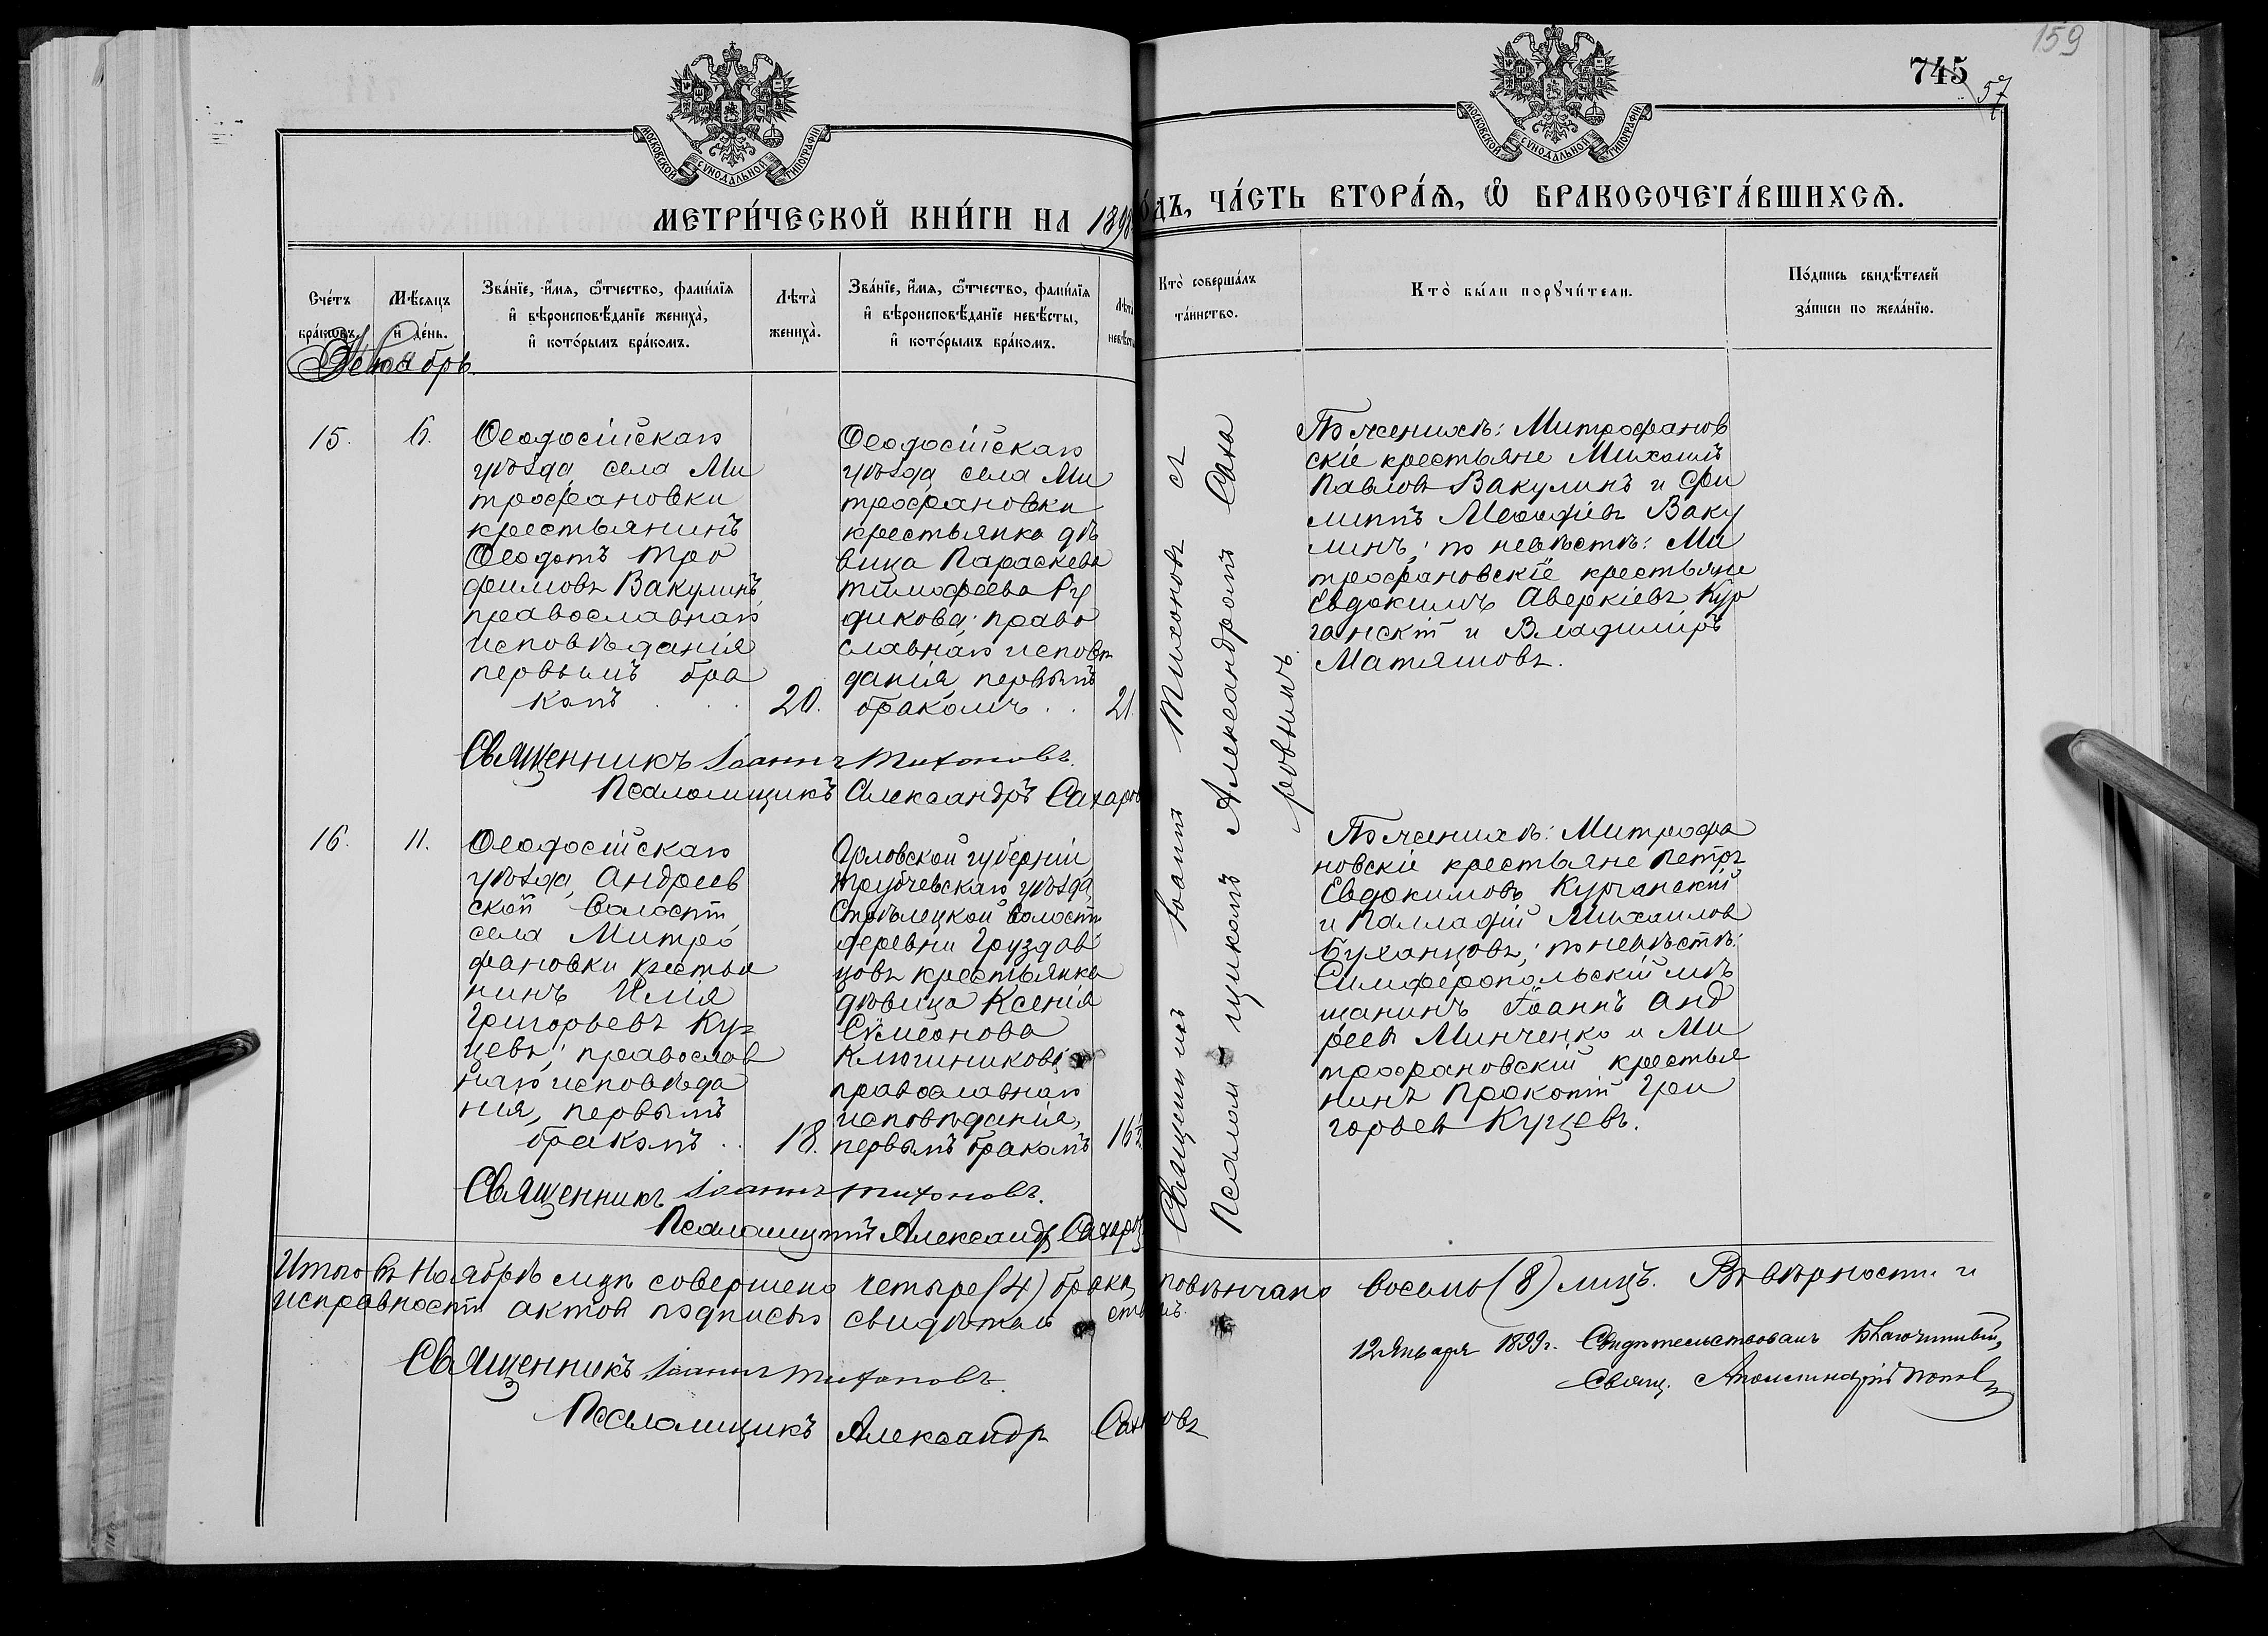 159
745
57
МОСКОВСКОЙ СѴНОДАЛЬНОЙ ТИПОГРАФІИ
МОСКОВСКОЙ СѴНОДАЛЬНОЙ ТИПОГРАФІИ
МЕТРИ́ЧЕСКОЙ КНИ́ГИ НА 1898
О́ДЪ, ЧА́СТЬ ВТОРА́Ѧ, Ѡ҆ БРАКОСОЧЕТА́ВШИХСѦ.
Сче́тъ
бра́ковъ.
Мѣ́сѧцъ
и҆ де́нь.
Зва́нїе, и҆́мѧ, ѻ҆́тчество, фами́лїѧ
и҆ вѣроисповѣ́данїе жениха̀,
и҆ кото́рымъ бра́комъ.
Лѣта̀
жениха̀.
Зва́нїе, и҆́мѧ, ѻ҆́тчество, фами́лїѧ
и҆ вѣроисповѣ́данїе невѣ́сты,
и҆ кото́рымъ бра́комъ.
Лѣта̀
невѣ́сты
Кто̀ соверша́лъ
та́инство.
Кто̀ бы́ли порꙋчи́тели.
По́дпись свидѣ́телей
за́писи по жела́нїю.
15.
6.
Ѳеодосійскаго
уѣзда, села Ми
трофановки
крестьянинъ
Ѳеодотъ Тро
фимовъ Вакулинъ,
православнаго
исповѣданія
первымъ бра
комъ . . .
20.
Ѳеодосійскаго
уѣзда села Ми
трофановки
крестьянка дѣ
вица Параскева
Тимофеева Ру
дикова; право
славнаго исповѣ
данія, первымъ
бракомъ . .
21.
По женихѣ: Митрофанов
скіе крестьяне Михаилъ
Павловъ Вакулинъ и Фи
липпъ Меѳодіевъ Ваку
линъ; по невѣстѣ: Ми
трофановскіе крестьяне
Евдокимъ Аверкіевъ Кур
ганскій и Владиміръ
Матяшовъ.
Священникъ Іоаннъ Тихоновъ.
Псаломщикъ Александръ Сахаров
16.
11.
Ѳеодосійскаго
уѣзда, Андреев
ской волости
села Митро
фановки крестья
нинъ Илія
Григорьевъ Ку=
цевъ; православ
наго исповѣда
нія, первымъ
бракомъ . .
18.
Орловской губерніи
Трубчевскаго уѣзда,
волости
деревни Груздов
цовъ крестьянка
дѣвица Ксенія
Сѵмеонова
Ключникова
православнаго
исповѣданія,
первымъ бракомъ
16½
По женихѣ: Митрофа
новскіе крестьяне Петръ
Евдокимовъ Курганскій
и Палладій Михаилов
Буханцовъ; по невѣстѣ:
Симферопольскій мѣ
щанинъ Іоаннъ Анд
реевъ Минченко и Ми
трофановскій крестья
нинъ Прокопій Гри
горьевъ Куцевъ.
Священникъ Іоаннъ Тихоновъ.
Псаломщикъ Александръ Сахаров
Священникъ Іоаннъ Тихоновъ съ
Псаломщикомъ Александромъ Саха
ровымъ.
Итого въ Ноябрѣ мцѣ совершено четыре (4) брака, повѣнчано восемь (8) лицъ. Въ вѣрности и
исправности актовъ подписью свидѣтель ствуемъ.
Священникъ Іоаннъ Тихоновъ.
Псаломщикъ Александръ Сахаровъ
12 Января 1899 г. Свидѣтельствовалъ Благочинный,
Свящ. Аполлинарій Поповъ